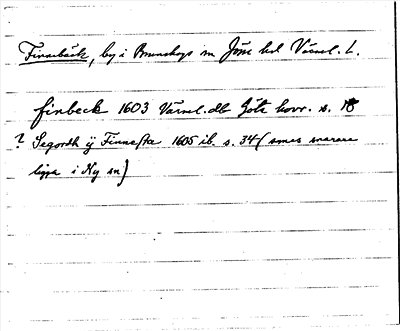 Finnebäck, by i Brunskogs sn Jösse hd Värml. L.
finbeck 1603 Värml. db Göta hovr. s. 18
? Segordh ÿ Finnesta 1605 ib. s. 34 (synes snarare
ligga i Ny sn)